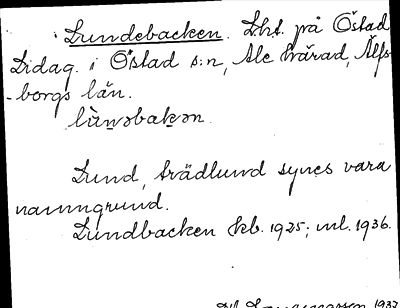 Lundebacken. Lht. på Östad
Lidag. i Östad s:n, Ale härad, Älfs-
borgs län.
lùn̥əbakən.
Lund, trädlund synes vara
namngrund.
Lundbacken kb. 1925; ml. 1936.
1937